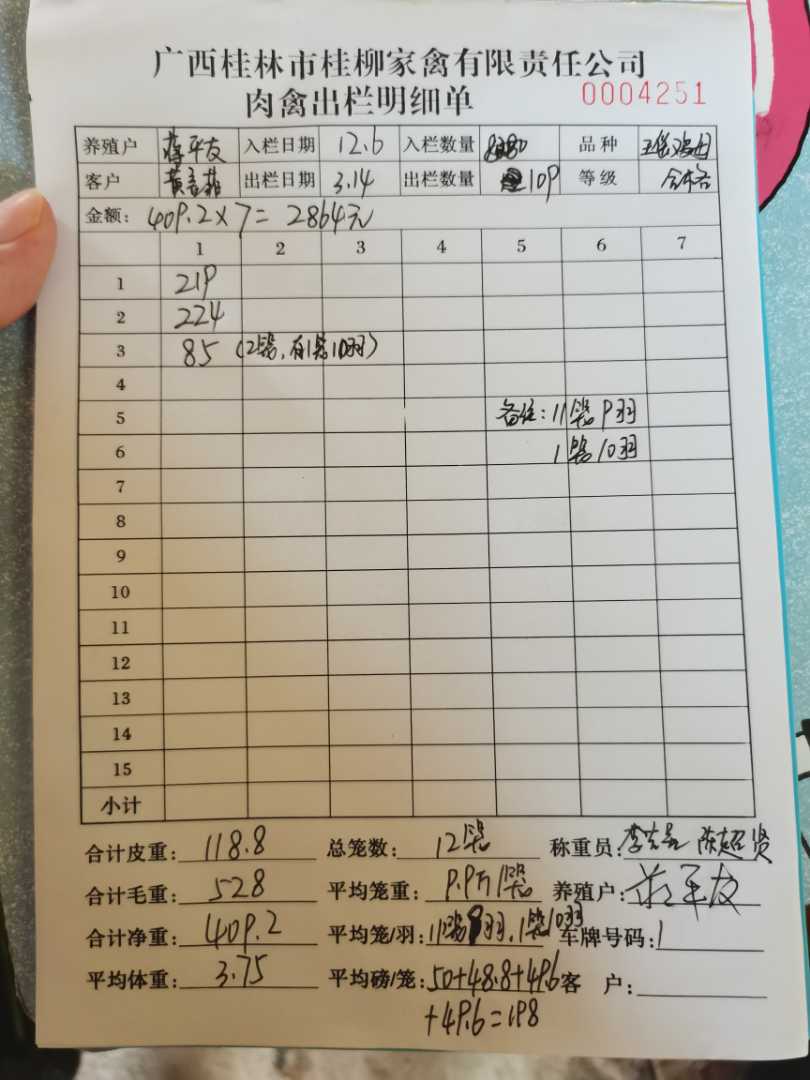 广西桂林市桂柳家禽有限责任公司
肉禽出栏明细单 0004251
养殖户 蒋平友 入栏日期 12.6 入栏数量 品种
客户 出栏日期 3.14 出栏数量 109 等级 合格
金额: 409.2×7= 2864元
1 2 3 4 5 6 7
1 219
2 224
3 85 (2笼,有1笼10羽)
4
5 备注: 11笼9羽
6 1笼10羽
7
8
9
10
11
12
13
14
15
小计
合计皮重: 118.8 总笼数: 12笼 称重员: 陈超贤
合计毛重: 528 平均笼重: 9.9斤/笼 养殖户: 蒋平友
合计净重: 409.2 平均笼/羽: 11笼9羽,1笼10羽 车牌号码:
平均体重: 3.75 平均磅/笼: 50+48.8+49.6 客 户:
+49.6=198